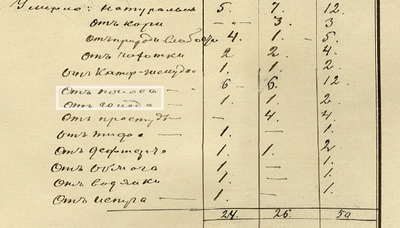 Умерло: натуральн 5. 7. 12.
отъ кори — 3. 3
отъ природн. слабос 4. 1. 5.
отъ чахотки 2 2 4.
отъ катар-желудка 1. 1. 2.
отъ поноса 6 — 6. 12
отъ голода 1. 1. 2
отъ простуды — 4. 4.
отъ тифа 1. — 1.
отъ дефтерита 1. 1. 2
отъ 1. — 1.
отъ водянки 1. — 1.
отъ испуга 1. — 1.
24. 26. 50